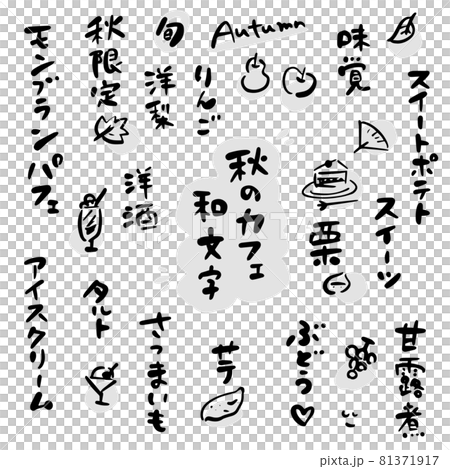 Autumn
旬
秋限定
モンブランパフェ
洋梨
りんご
味覚
スイートポテト
スイーツ
秋のカフェ
和文字
洋酒
栗
アイスクリーム
タルト
さつまいも
芋
ぶどう♡
甘露煮
PIXTA
pixta.jp - 81371917